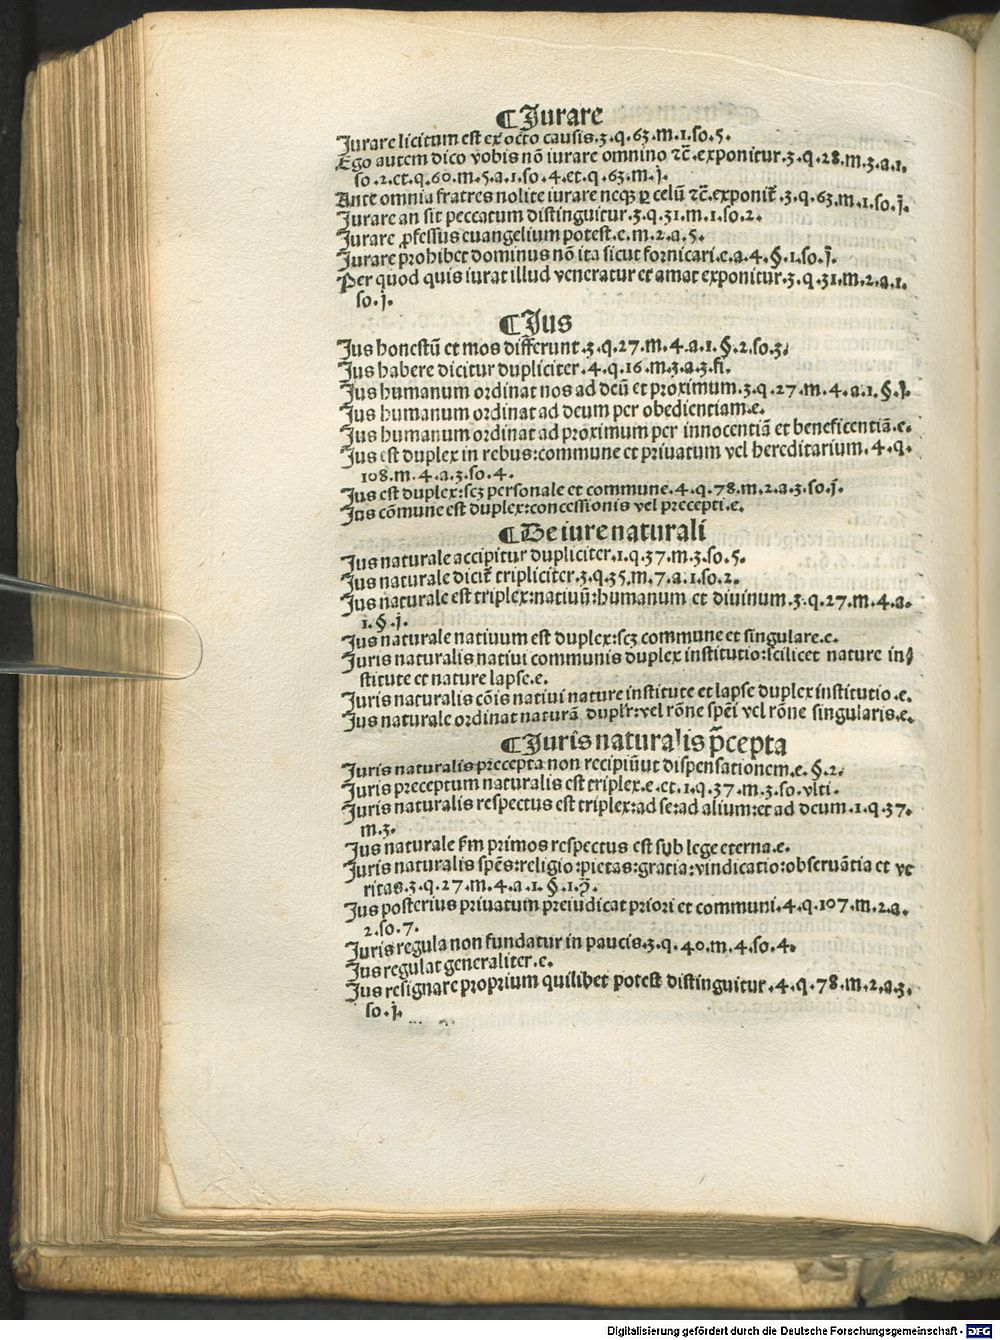 ¶Iurare
Iurare licitum est ex octo causis.3.q.63.m.1.so.5.
Ego autem dico vobis nō iurare omnino ⁊c̄.exponitur.3.q.28.m.3.a.1.
so.2.et.q.60.m.5.a.1.so.4.et.q.63.m.j.
Ante omnia fratres nolite iurare neqꝫ ꝑ celū ⁊c̄.exponit᷑.3.q.63.m.1.so.j.
Iurare an sit peccatum distinguitur.3.q.31.m.1.so.2.
Iurare ꝓfessus euangelium potest.e.m.2.a.5.
Iurare prohibet dominus nō ita sicut fornicari.e.a.4.§.1.so.j.
Per quod quis iurat illud veneratur et amat exponitur.3.q.31.m.2.a.1.
so.j.
¶Ius
Ius honestū et mos differunt.3.q.27.m.4.a.1.§.2.so.3.
Ius habere dicitur dupliciter.4.q.16.m.3.a.3.fi.
Ius humanum ordinat nos ad deū et proximum.3.q.27.m.4.a.1.§.j.
Ius humanum ordinat ad deum per obedientiam.e.
Ius humanum ordinat ad proximum per innocentiā et beneficentiā.e.
Ius est duplex in rebus:commune et priuatum vel hereditarium.4.q.
108.m.4.a.3.so.4.
Ius est duplex:scꝫ personale et commune.4.q.78.m.2.a.3.so.j.
Ius cōmune est duplex:concessionis vel precepti.e.
¶De iure naturali
Ius naturale accipitur dupliciter.1.q.37.m.3.so.5.
Ius naturale dicit᷑ tripliciter.3.q.35.m.7.a.1.so.2.
Ius naturale est triplex:natiuū:humanum et diuinum.3.q.27.m.4.a.
1.§.j.
Ius naturale natiuum est duplex:scꝫ commune et singulare.e.
Iuris naturalis natiui communis duplex institutio:scilicet nature in⸗
stitute et nature lapse.e.
Iuris naturalis cōis natiui nature institute et lapse duplex institutio.e.
Ius naturale ordinat naturā duplr̄:vel rōne spēi vel rōne singularis.e.
¶Iuris naturalis p̄cepta
Iuris naturalis precepta non recipiūut dispensationem.e.§.2.
Iuris preceptum naturalis est triplex.e.et.1.q.37.m.3.so.vlti.
Iuris naturalis respectus est triplex:ad se:ad alium:et ad deum.1.q.37.
m.3.
Ius naturale ẜm primos respectus est sub lege eterna.e.
Iuris naturalis spēs:religio:pietas:gratia:vindicatio:obseruātia et ve
ritas.3.q.27.m.4.a.1.§.1.
Ius posterius priuatum preiudicat priori et communi.4.q.107.m.2.a.
2.so.7.
Iuris regula non fundatur in paucis.3.q.40.m.4.so.4.
Ius regulat generaliter.e.
Ius resignare proprium quilibet potest distinguitur.4.q.78.m.2.a.3.
so.j.
Digitalisierung gefördert durch die Deutsche Forschungsgemeinschaft - DFG